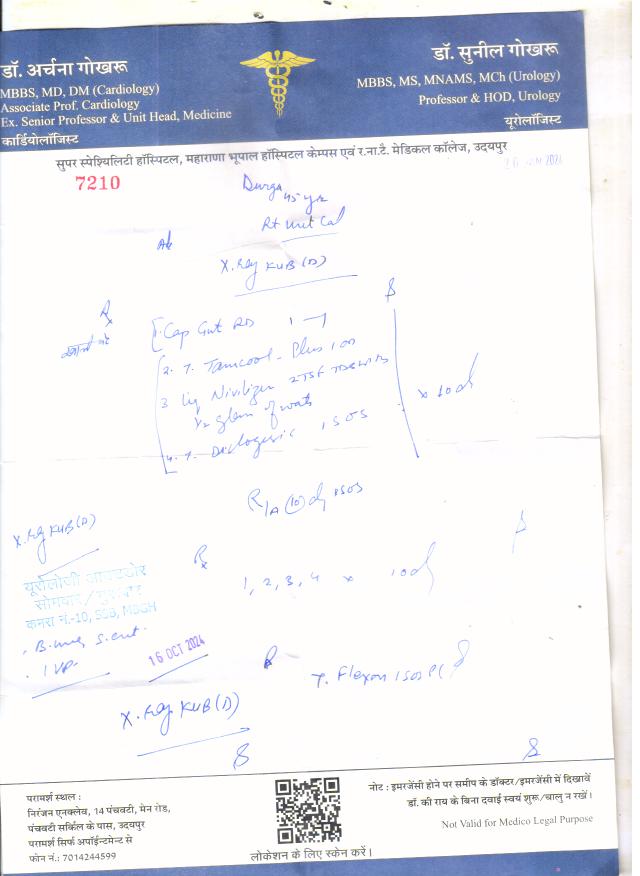 डॉ. अर्चना गोखरू
MBBS, MD, DM (Cardiology)
Associate Prof. Cardiology
Ex. Senior Professor & Unit Head, Medicine
कार्डियोलॉजिस्ट
डॉ. सुनील गोखरू
MBBS, MS, MNAMS, MCh (Urology)
Professor & HOD, Urology
यूरोलॉजिस्ट
सुपर स्पेश्यिलिटी हॉस्पिटल, महाराणा भूपाल हॉस्पिटल केम्पस एवं र.ना.टै. मेडिकल कॉलेज, उदयपुर
7210
Durga 45 yr
Rt
X.Ray KUB (D)
Rx
1. Cap
2. T. Tamcool - Plus 1 OD
3 Liq
1/2 glass of water
4. T. 1 SOS
x 10d
X.Ray KUB (D)
Rx
1, 2, 3, 4 x 10d
यूरोलॉजी आउटडोर
सोमवार/गुरुवार
कमरा नं.-10, SSB, MBGH
S. creat.
IVP
16 OCT 2024
T. Flexon 1 SOS
X.Ray KUB (D)
परामर्श स्थल :
निरंजन एनक्लेव, 14 पंचवटी, मेन रोड,
पंचवटी सर्किल के पास, उदयपुर
परामर्श सिर्फ अपॉईन्टमेन्ट से
फोन नं.: 7014244599
लोकेशन के लिए स्केन करें।
नोट : इमरजेंसी होने पर समीप के डॉक्टर/इमरजेंसी में दिखावें
डॉ. की राय के बिना दवाई स्वयं शुरू/चालू न रखें।
Not Valid for Medico Legal Purpose